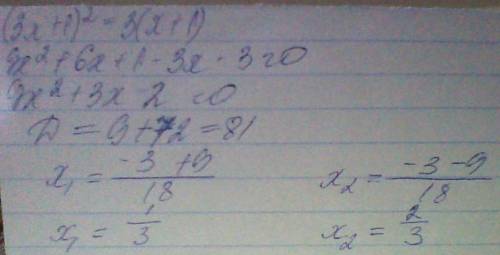 (3x+1)² = 3(x+1)
9x² + 6x + 1 - 3x - 3 = 0
9x² + 3x - 2 = 0
D = 9 + 72 = 81
x₁ = (-3 + 9)/18    x₂ = (-3 - 9)/18
x₁ = 1/3    x₂ = 2/3